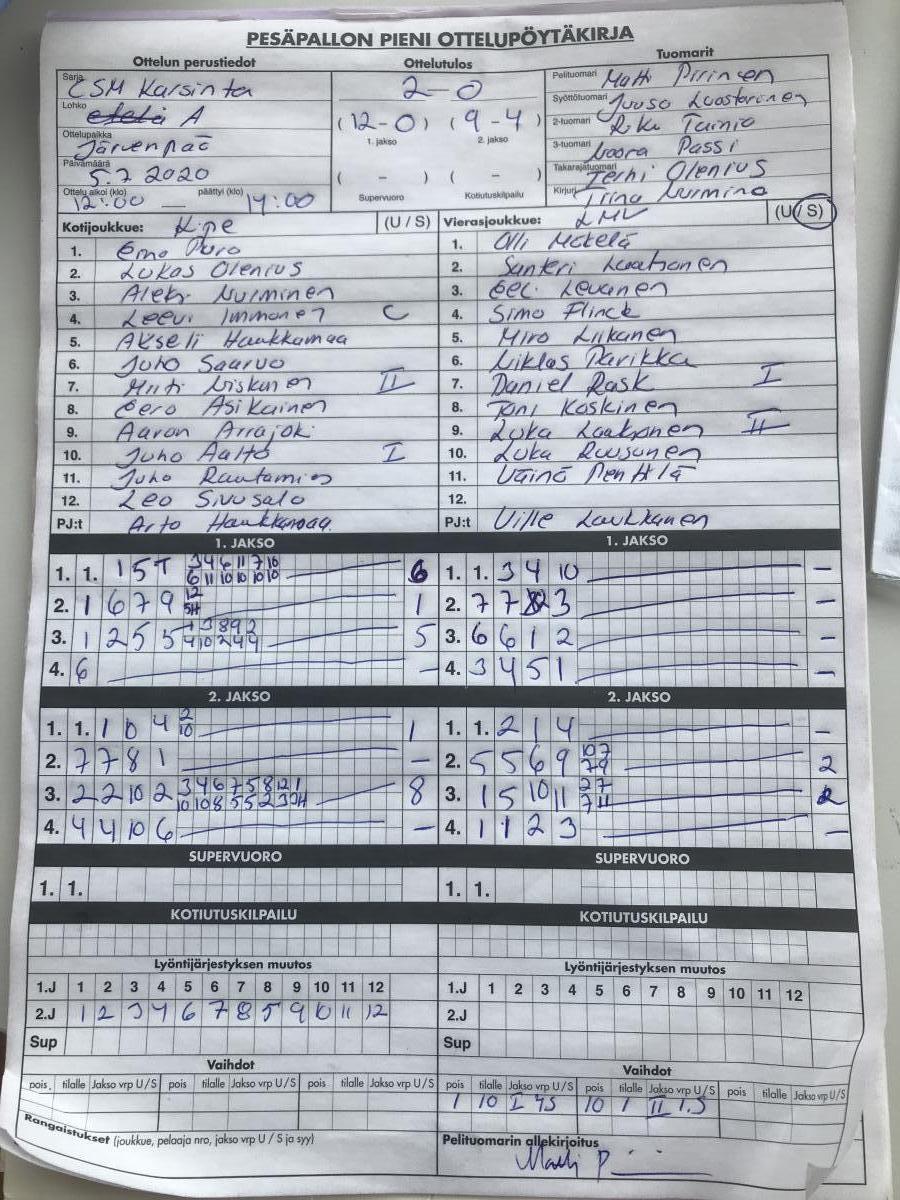 PESÄPALLON PIENI OTTELUPÖYTÄKIRJA
Ottelun perustiedot
Sarja CSM Karsinta
Lohko A
Ottelupaikka Järvenpää
Päivämäärä 5.7 2020
Ottelu alkoi (klo) 12:00 — päättyi (klo) 14:00
Ottelutulos
2-0
(12-0) (9-4)
1. jakso 2. jakso
( - ) ( - )
Supervuoro Kotiutuskilpailu
Tuomarit
Pelituomari Matti Piirinen
Syöttötuomari Juuso Luostarinen
2-tuomari Riku Tainio
3-tuomari Noora Passi
Takarajatuomari Terhi Olenius
Kirjuri Nurmine
Kotijoukkue: Kipe (U / S)
1. Puro
2. Lukas Olenius
3. Aleksi Nurminen
4. Leevi Immonen C
5. Akseli Haukkamaa
6. Juho Saarvo
7. Miiti Niskanen II
8. Eero Asikainen
9. Aaron Arrajoki
10. Juho Aalto I
11. Juho Rautamies
12. Leo Sivusalo
PJ:t Arto Haukkamaa
Vierasjoukkue: LMV (U / S)
1. Olli Mäkelä
2. Santeri Laaksonen
3. Eeli Levanen
4. Simo Flinck
5. Miro Liikanen
6. Niklas Parikka
7. Daniel Rask I
8. Toni Koskinen
9. Luka Laaksonen II
10. Luka Ruusunen
11. Väinö Penttilä
12.
PJ:t Ville Laukkanen
1. JAKSO
1. 1. 1 5 T 3 4 6 11 7 10 6
6 11 10 10 10 10
2. 1 6 7 9 12 1
3. 1 2 5 5 1 3 8 9 2 5
4 10 2 4 4
4. 6 -
1. JAKSO
1. 1. 3 4 10 -
2. 7 7 3 -
3. 6 6 1 2 -
4. 3 4 5 1 -
2. JAKSO
1. 1. 1 10 4 2 1
10
2. 7 7 8 1 -
3. 2 2 10 2 3 4 6 7 5 8 12 1 8
10 10 8 5 5 2
4. 4 4 10 6 -
2. JAKSO
1. 1. 2 1 4 -
2. 5 5 6 9 10 7 2
7 9
3. 1 5 10 11 2 7 2
7 11
4. 1 1 2 3 -
SUPERVUORO
1. 1.
SUPERVUORO
1. 1.
KOTIUTUSKILPAILU
KOTIUTUSKILPAILU
Lyöntijärjestyksen muutos
1.J 1 2 3 4 5 6 7 8 9 10 11 12
2.J 1 2 3 4 6 7 8 5 9 10 11 12
Sup
Lyöntijärjestyksen muutos
1.J 1 2 3 4 5 6 7 8 9 10 11 12
2.J
Sup
Vaihdot
pois. tilalle Jakso vrp U/S pois tilalle Jakso vrp U/S pois tilalle Jakso vrp U/S
Vaihdot
pois tilalle Jakso vrp U/S pois tilalle Jakso vrp U/S pois tilalle Jakso vrp U/S
1 10 I 4S 10 1 II 1.S
Rangaistukset (joukkue, pelaaja nro, jakso vrp U / S ja syy)
Pelituomarin allekirjoitus